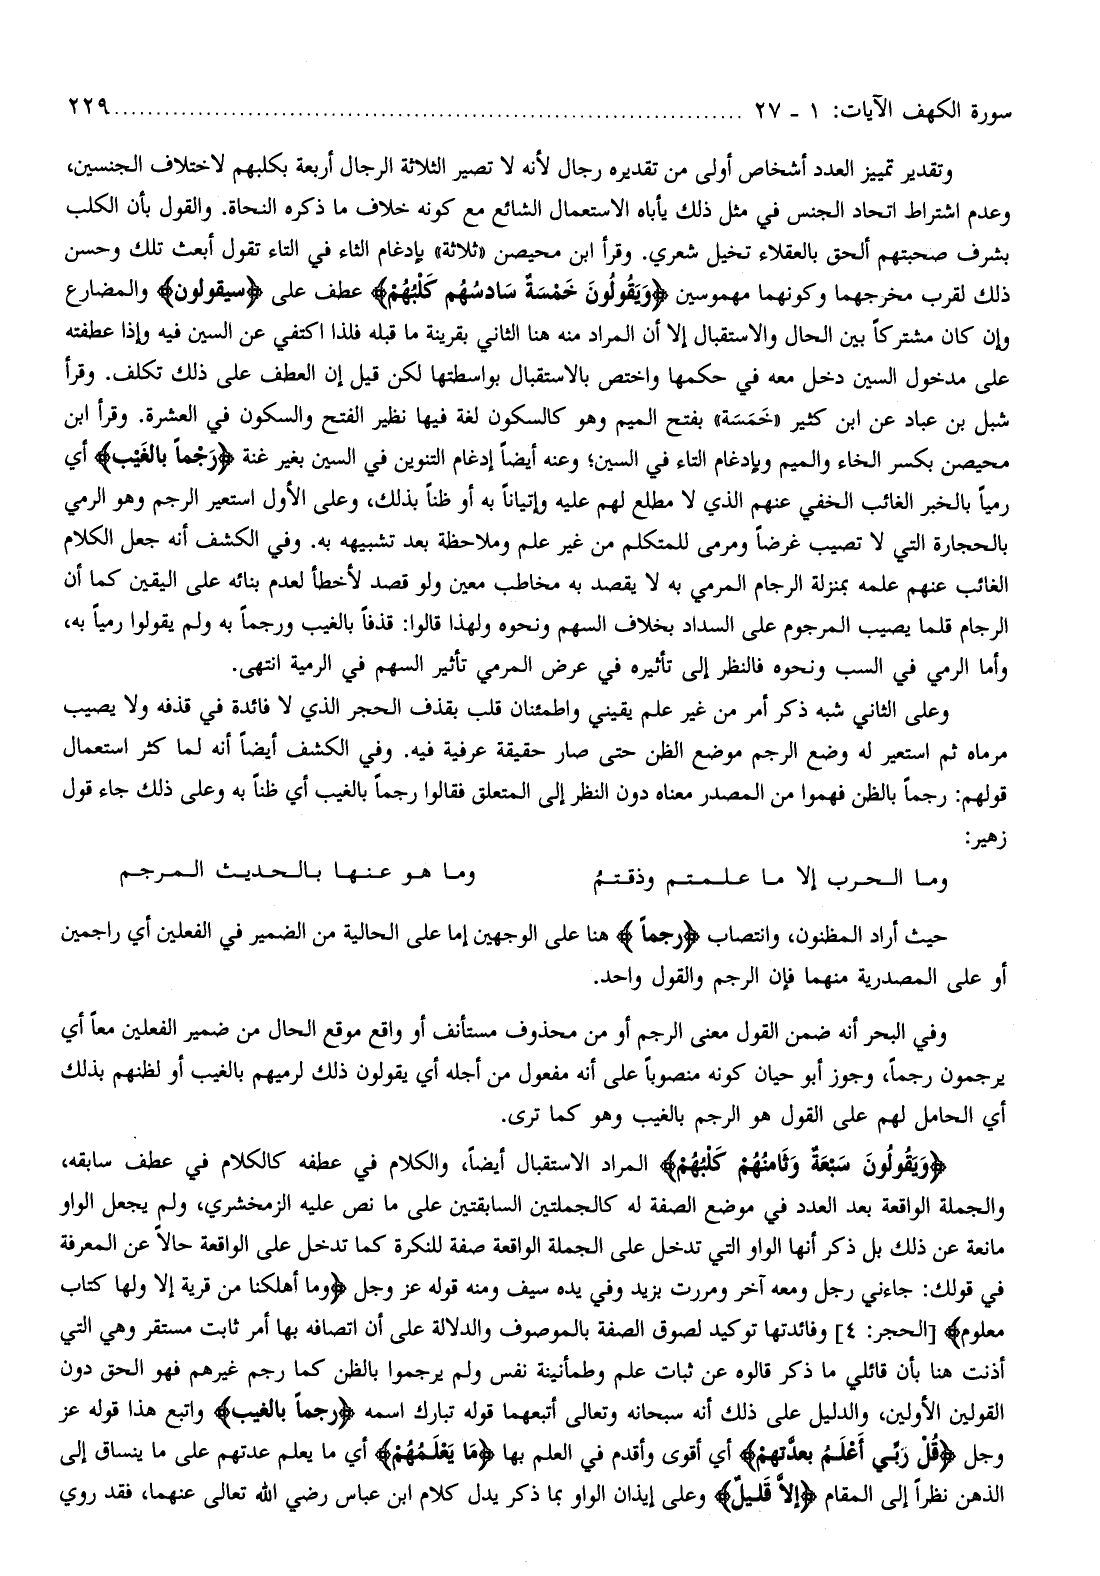 سورة الكهف الآيات: ١ - ٢٧ ........................................................................ ٢٢٩
وتقدير تمييز العدد أشخاص أولى من تقديره رجال لأنه لا تصير الثلاثة الرجال أربعة بكلبهم لاختلاف الجنسين،
وعدم اشتراط اتحاد الجنس في مثل ذلك يأباه الاستعمال الشائع مع كونه خلاف ما ذكره النحاة. والقول بأن الكلب
بشرف صحبتهم ألحق بالعقلاء تخيل شعري. وقرأ ابن محيصن «ثلاثة» بإدغام الثاء في التاء تقول أبعث تلك وحسن
ذلك لقرب مخرجهما وكونهما مهموسين ﴿وَيَقُولُونَ خَمْسَةٌ سَادسُهُم كَلْبُهُمْ﴾ عطف على ﴿سيقولون﴾ والمضارع
وإن كان مشتركاً بين الحال والاستقبال إلا أن المراد منه هنا الثاني بقرينة ما قبله فلذا اكتفي عن السين فيه وإذا عطفته
على مدخول السين دخل معه في حكمها واختص بالاستقبال بواسطتها لكن قيل إن العطف على ذلك تكلف. وقرأ
شبل بن عباد عن ابن كثير «خَمَسَة» بفتح الميم وهو كالسكون لغة فيها نظير الفتح والسكون في العشرة. وقرأ ابن
محيصن بكسر الخاء والميم وبإدغام التاء في السين؛ وعنه أيضاً إدغام التنوين في السين بغير غنة ﴿رَجْماً بالغَيْب﴾ أي
رمياً بالخبر الغائب الخفي عنهم الذي لا مطلع لهم عليه وإتياناً به أو ظناً بذلك، وعلى الأول استعير الرجم وهو الرمي
بالحجارة التي لا تصيب غرضاً ومرمى للمتكلم من غير علم وملاحظة بعد تشبيهه به. وفي الكشف أنه جعل الكلام
الغائب عنهم علمه بمنزلة الرجام المرمي به لا يقصد به مخاطب معين ولو قصد لأخطأ لعدم بنائه على اليقين كما أن
الرجام قلما يصيب المرجوم على السداد بخلاف السهم ونحوه ولهذا قالوا: قذفاً بالغيب ورجماً به ولم يقولوا رمياً به،
وأما الرمي في السب ونحوه فالنظر إلى تأثيره في عرض المرمي تأثير السهم في الرمية انتهى.
وعلى الثاني شبه ذكر أمر من غير علم يقيني واطمئنان قلب بقذف الحجر الذي لا فائدة في قذفه ولا يصيب
مرماه ثم استعير له وضع الرجم موضع الظن حتى صار حقيقة عرفية فيه. وفي الكشف أيضاً أنه لما كثر استعمال
قولهم: رجماً بالظن فهموا من المصدر معناه دون النظر إلى المتعلق فقالوا رجماً بالغيب أي ظناً به وعلى ذلك جاء قول
زهير:
وما الحرب إلا ما علمتم وذقتمُ     وما هو عنها بالحديث المرجم
حيث أراد المظنون، وانتصاب ﴿رجماً﴾ هنا على الوجهين إما على الحالية من الضمير في الفعلين أي راجمين
أو على المصدرية منهما فإن الرجم والقول واحد.
وفي البحر أنه ضمن القول معنى الرجم أو من محذوف مستأنف أو واقع موقع الحال من ضمير الفعلين معاً أي
يرجمون رجماً، وجوز أبو حيان كونه منصوباً على أنه مفعول من أجله أي يقولون ذلك لرميهم بالغيب أو لظنهم بذلك
أي الحامل لهم على القول هو الرجم بالغيب وهو كما ترى.
﴿وَيَقُولُونَ سَبْعَةٌ وَثَامنُهُمْ كَلْبُهُمْ﴾ المراد الاستقبال أيضاً، والكلام في عطفه كالكلام في عطف سابقه،
والجملة الواقعة بعد العدد في موضع الصفة له كالجملتين السابقتين على ما نص عليه الزمخشري، ولم يجعل الواو
مانعة عن ذلك بل ذكر أنها الواو التي تدخل على الجملة الواقعة صفة للنكرة كما تدخل على الواقعة حالاً عن المعرفة
في قولك: جاءني رجل ومعه آخر ومررت بزيد وفي يده سيف ومنه قوله عز وجل ﴿وما أهلكنا من قرية إلا ولها كتاب
معلوم﴾ [الحجر: ٤] وفائدتها توكيد لصوق الصفة بالموصوف والدلالة على أن اتصافه بها أمر ثابت مستقر وهي التي
أذنت هنا بأن قائلي ما ذكر قالوه عن ثبات علم وطمأنينة نفس ولم يرجموا بالظن كما رجم غيرهم فهو الحق دون
القولين الأولين، والدليل على ذلك أنه سبحانه وتعالى أتبعهما قوله تبارك اسمه ﴿رجماً بالغيب﴾ واتبع هذا قوله عز
وجل ﴿قُلْ رَبِّي أَعْلَمُ بعدَّتهمْ﴾ أي أقوى وأقدم في العلم بها ﴿مَا يَعْلَمُهُمْ﴾ أي ما يعلم عدتهم على ما ينساق إلى
الذهن نظراً إلى المقام ﴿إلاَّ قَليلٌ﴾ وعلى إيذان الواو بما ذكر يدل كلام ابن عباس رضي الله تعالى عنهما، فقد روي